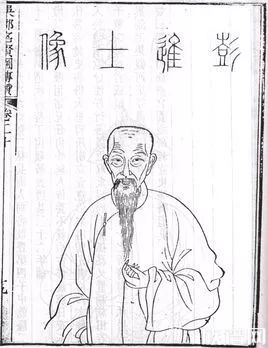 彭進士像
吳郡名賢圖傳贊
卷二十